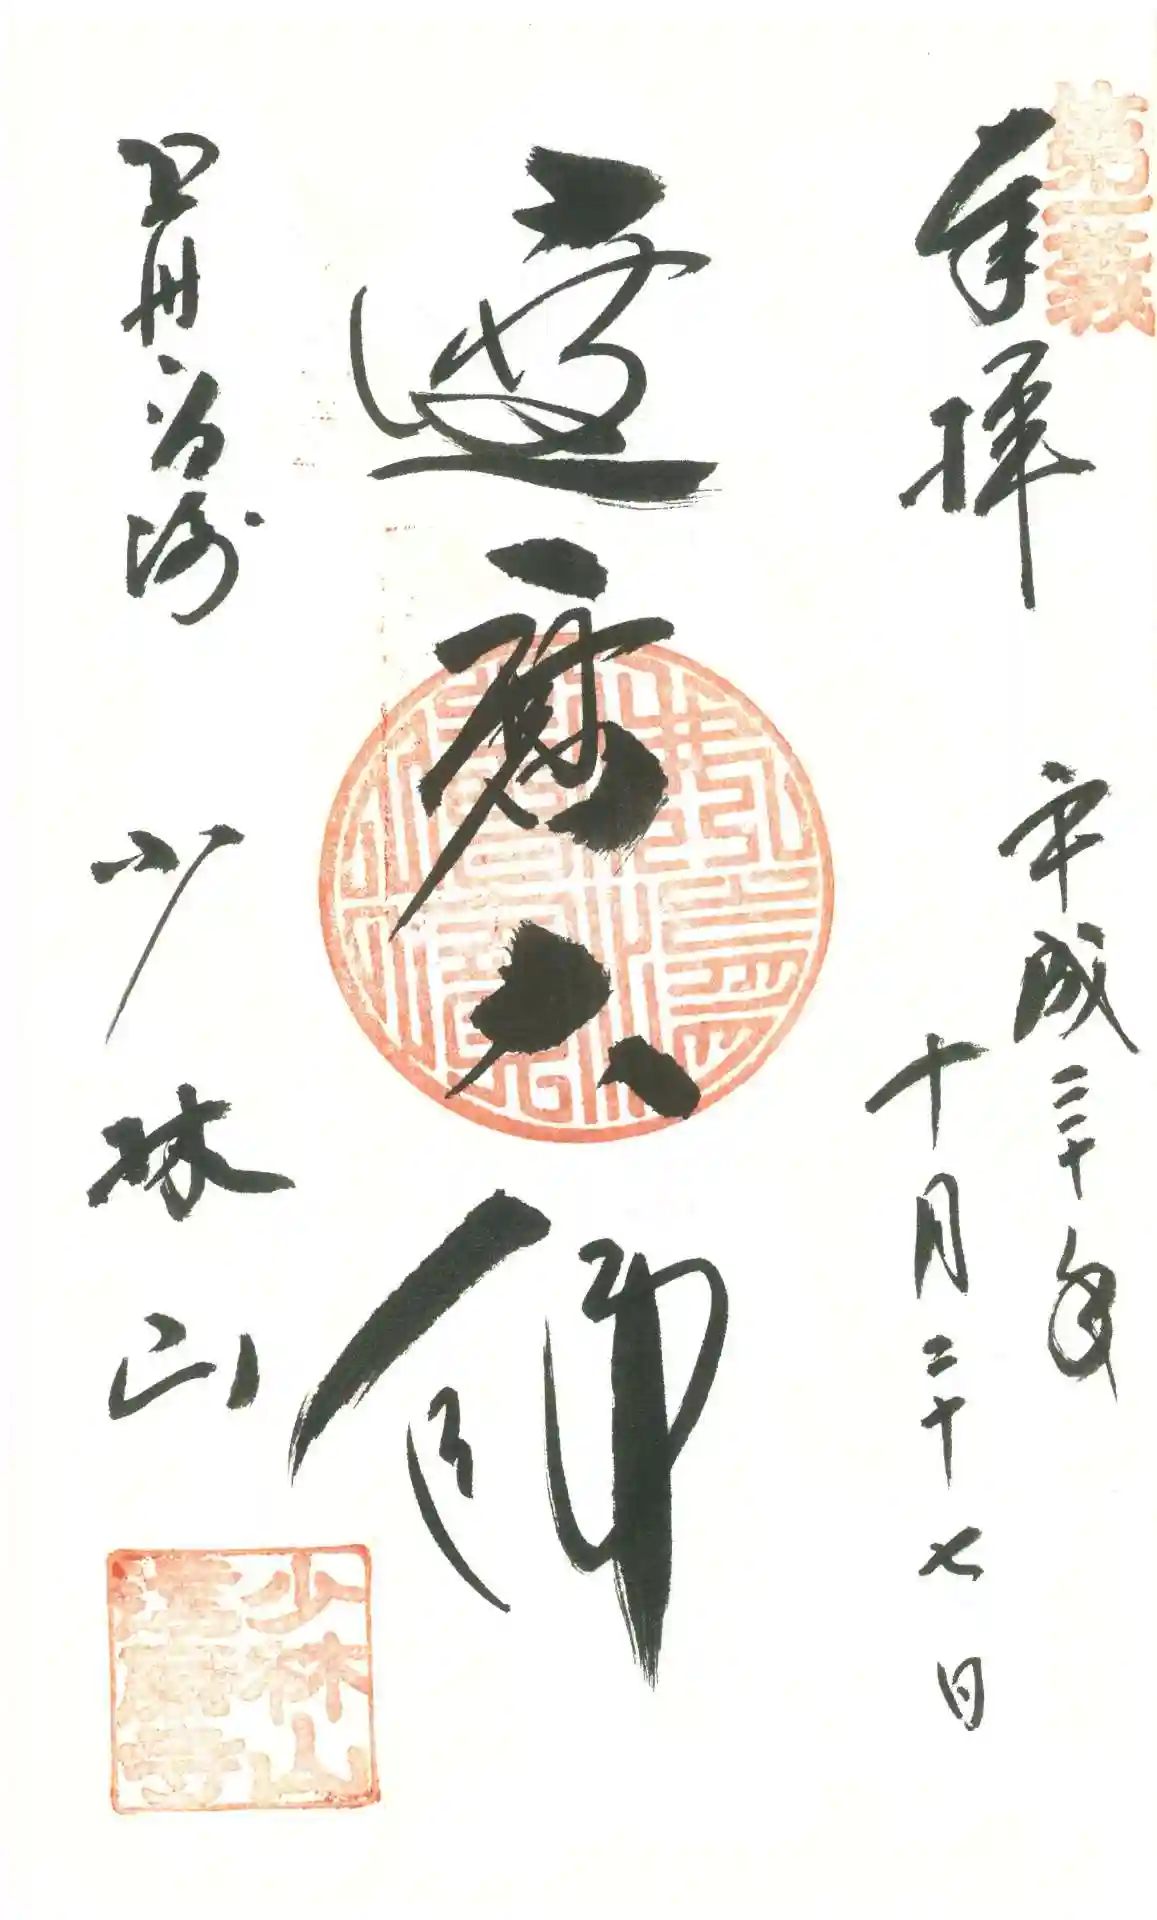 第一義
奉拝
平成三十年
十月二十七日
達磨大師
上州
少林山
少林山
達磨寺